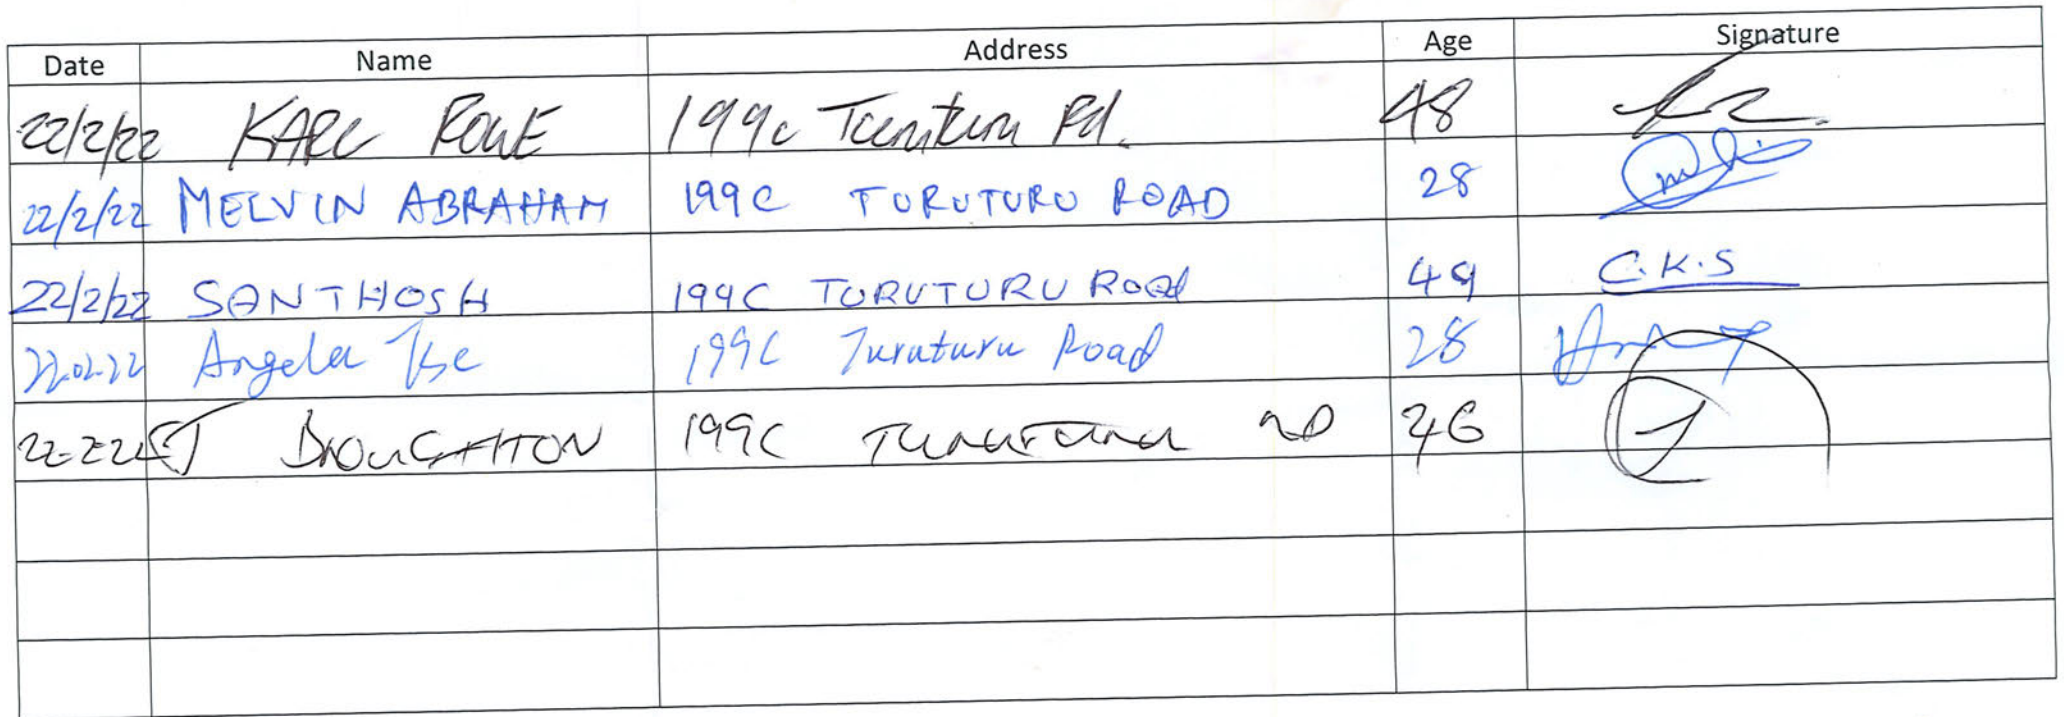 Date Name Address Age Signature
22/2/22 KARL ROWE 199c Turuturu Rd. 48
22/2/22 MELVIN ABRAHAM 199C TURUTURU ROAD 28
22/2/22 SANTHOSH 199C TURUTURU Road 49 C.K.S
22.02.22 Angela Tse 199C Turuturu Road 28
22-2-22 BROUGHTON 199C Turuturu RD 46